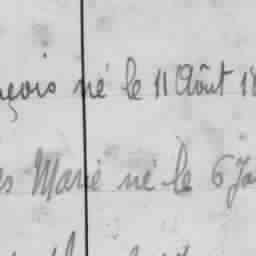 çois né le 11 Août 18
s Marie né le 6 Ja